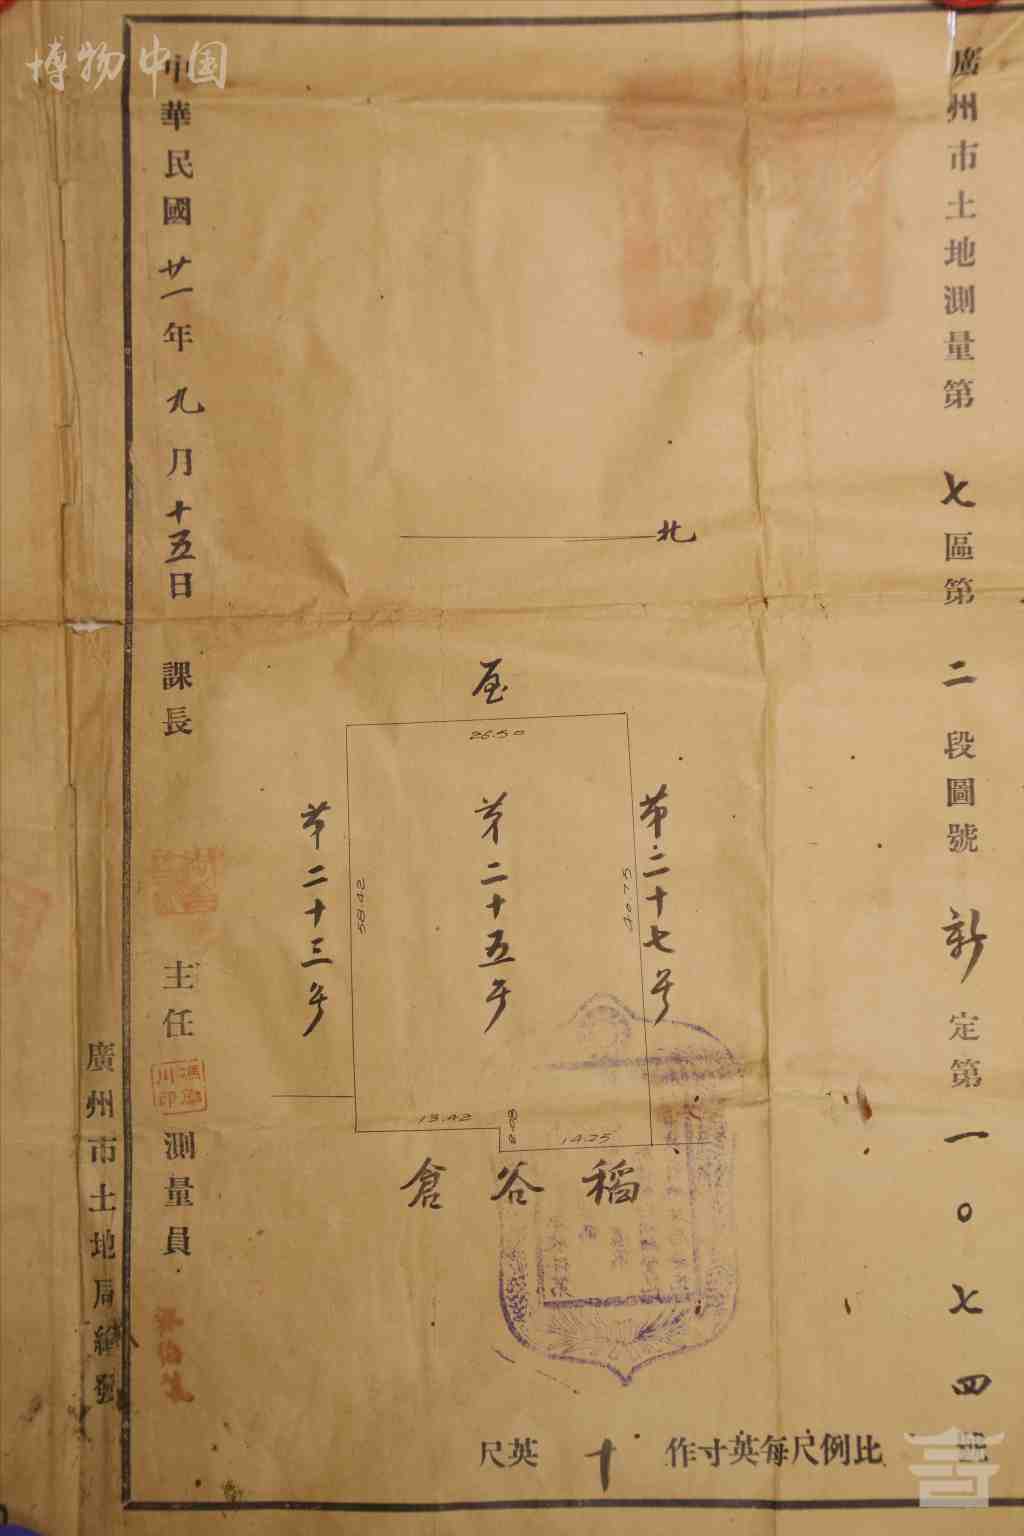 博物中国
廣州市土地測量第七區第二段圖號新定第一〇七四號
北
屋
26.50
第二十七号
40.75
第二十五号
第二十三号
58.42
13.42
14.25
稻谷倉
比例尺每英寸作十英尺
中華民國廿一年九月十五日 課長 主任 測量員
廣州市土地局繪發